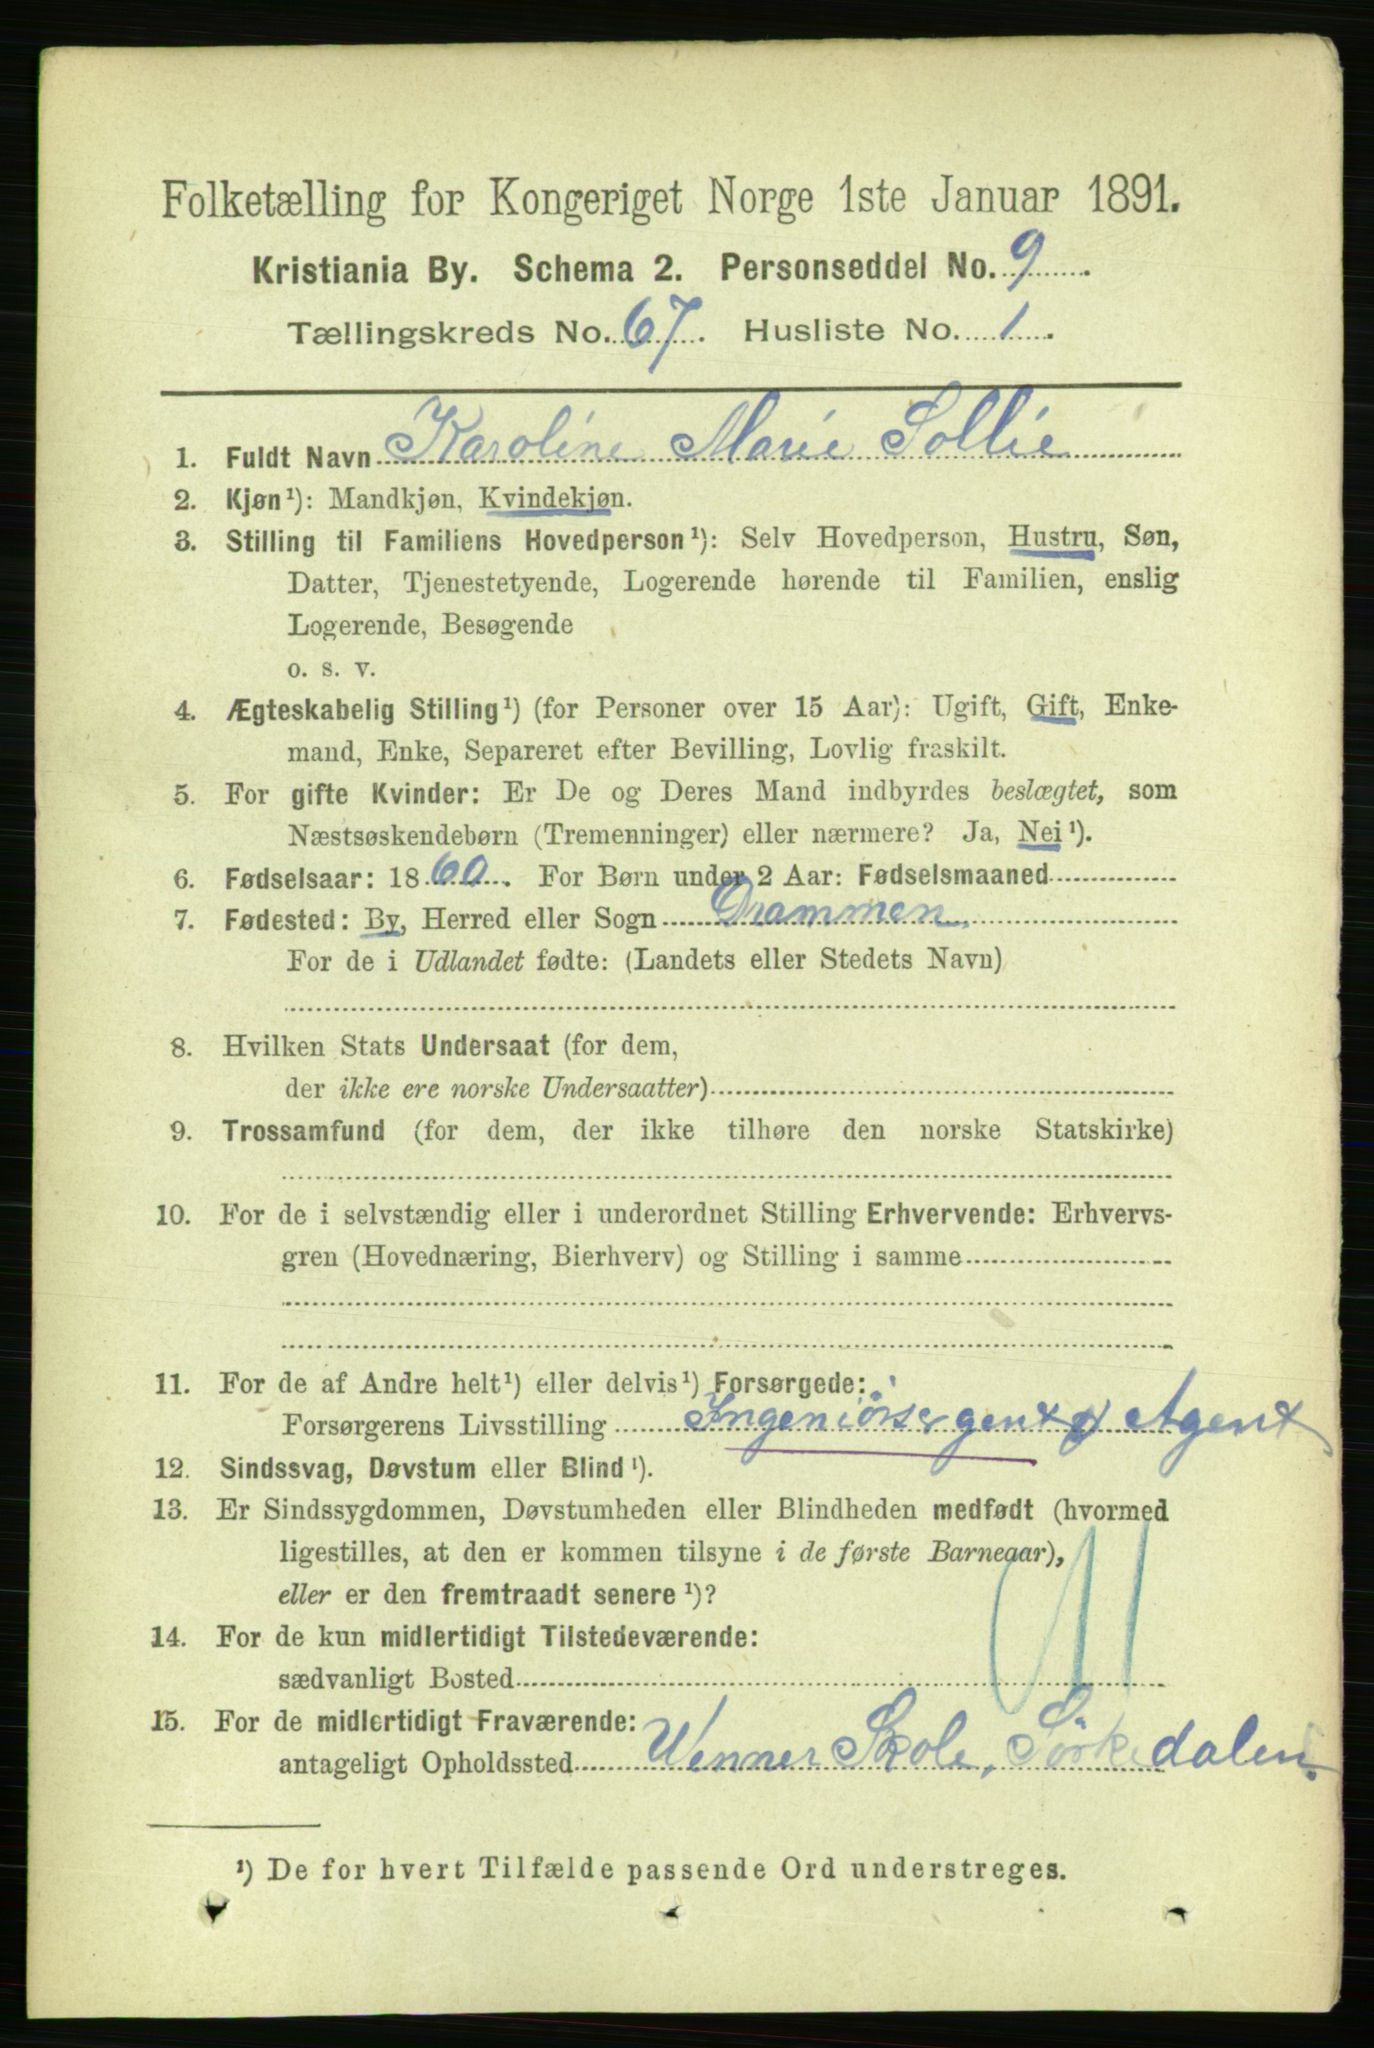 Folketælling for Kongeriget Norge 1ste Januar 1891.
Kristiania By. Schema 2. Personseddel No. 9.
Tællingskreds No. 67. Husliste No. 1.
1. Fuldt Navn Karoline Marie Sollie
2. Kjøn¹): Mandkjøn, Kvindekjøn.
3. Stilling til Familiens Hovedperson¹): Selv Hovedperson, Hustru, Søn,
Datter, Tjenestetyende, Logerende hørende til Familien, enslig
Logerende, Besøgende
o. s. v.
4. Ægteskabelig Stilling¹) (for Personer over 15 Aar): Ugift, Gift, Enke-
mand, Enke, Separeret efter Bevilling, Lovlig fraskilt.
5. For gifte Kvinder: Er De og Deres Mand indbyrdes beslægtet, som
Næstsøskendebørn (Tremenninger) eller nærmere? Ja, Nei¹).
6. Fødselsaar: 1860. For Børn under 2 Aar: Fødselsmaaned
7. Fødested: By, Herred eller Sogn Drammen.
For de i Udlandet fødte: (Landets eller Stedets Navn)
8. Hvilken Stats Undersaat (for dem,
der ikke ere norske Undersaatter)
9. Trossamfund (for dem, der ikke tilhøre den norske Statskirke)
10. For de i selvstændig eller i underordnet Stilling Erhvervende: Erhvervs-
gren (Hovednæring, Bierhverv) og Stilling i samme
11. For de af Andre helt¹) eller delvis¹) Forsørgede:
Forsørgerens Livsstilling Agent
12. Sindssvag, Døvstum eller Blind¹).
13. Er Sindssygdommen, Døvstumheden eller Blindheden medfødt (hvormed
ligestilles, at den er kommen tilsyne i de første Barneaar),
eller er den fremtraadt senere¹)?
14. For de kun midlertidigt Tilstedeværende:
sædvanligt Bosted
15. For de midlertidigt Fraværende:
antageligt Opholdssted Wenner Skole, Sörkedalen.
¹) De for hvert Tilfælde passende Ord understreges.